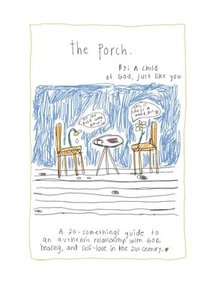 the porch.
By: A child
of God, just like you.
A 20-somethings guide to
an authentic relationship with God,
healing, and self-love in the 21st century.